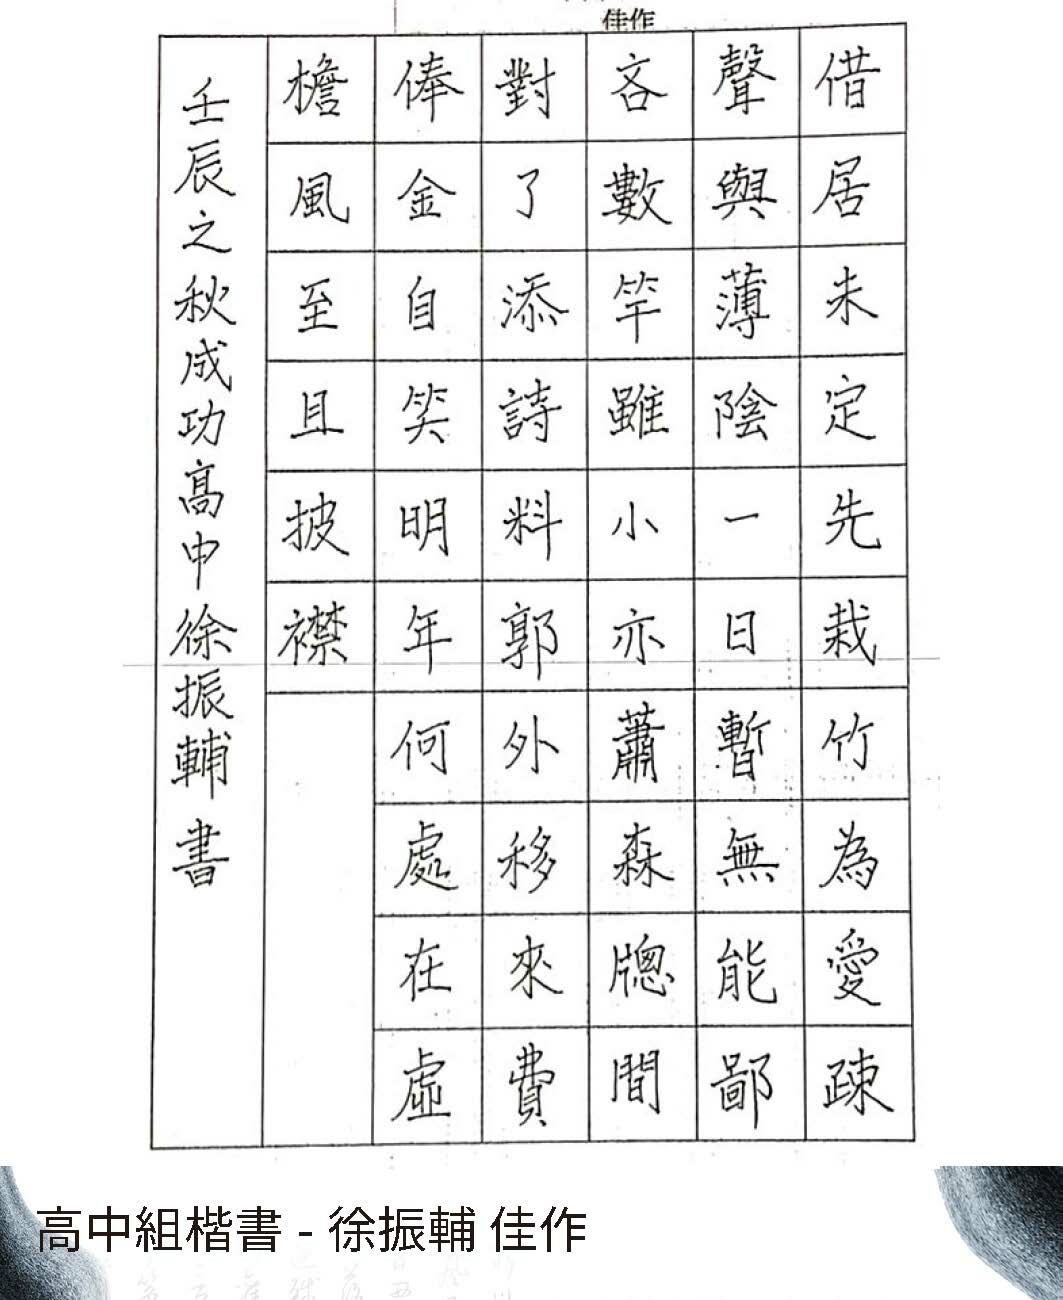 佳作
借居未定先栽竹為愛疎
聲與薄陰一日暫無能鄙
吝數竿雖小亦蕭森牕間
對了添詩料郭外移來費
俸金自笑明年何處在虛
檐風至且披襟
壬辰之秋成功高中徐振輔書
高中組楷書 - 徐振輔 佳作